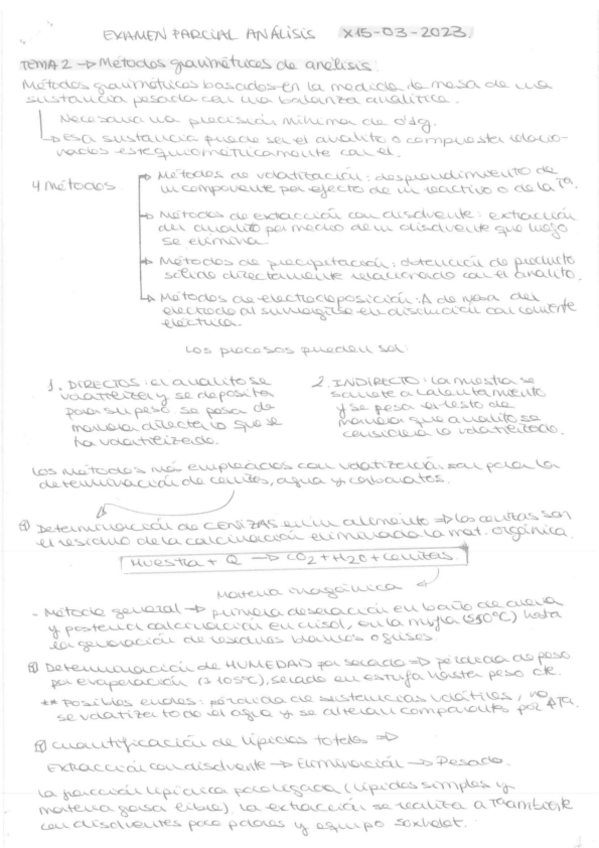 EXAMEN PARCIAL ANÁLISIS X15-03-2023.
TEMA 2 → Métodos gravimétricos de análisis:
Métodos gravimétricos basados en la medida de masa de una
sustancia pesada con una balanza analítica.
Necesaria una precisión mínima de 0'1g.
→ Esa sustancia puede ser el analito o compuesto relacio-
nados estequiométricamente con él.
4 Métodos
→ Métodos de volatilización: desprendimiento de
un componente por efecto de un reactivo o de la Tª.
→ Métodos de extracción con disolvente: extracción
del analito por medio de un disolvente que luego
se elimina.
→ Métodos de precipitación: obtención de producto
sólido directamente relacionado con el analito.
→ Métodos de electrodeposición: Δ de masa del
electrodo al sumergirse en disolución con corriente
eléctrica.
Los procesos pueden ser:
1. DIRECTOS: el analito se
volatiliza y se deposita
para su peso. Se pesa de
manera directa lo que se
ha volatilizado.
2. INDIRECTO: la muestra se
somete a calentamiento
y se pesa el resto de
manera que analito se
considera lo volatilizado.
Los métodos más empleados con volatización son para la
determinación de cenizas, agua y carbonatos.
Determinación de CENIZAS en un alimento ⇒ las cenizas son
el residuo de la calcinación eliminada la mat. orgánica.
Muestra + Q → CO2 + H2O + cenizas.
Materia inorgánica
- Método general → primera desecación en baño de arena
y posterior calcinación en crisol, en la mufla (550ºC) hasta
la generación de residuos blancos o grises.
Determinación de HUMEDAD por secado ⇒ pérdida de peso
por evaporación (105ºC), secado en estufa hasta peso cte.
** Posibles errores: pérdida de sustancias volátiles, no
se volatiza todo el agua y se alteran componentes por ΔTª.
Cuantificación de lípidos totales ⇒
Extracción con disolvente → Eliminación → Pesado.
La fracción lipídica poco ligada (lípidos simples y
materia grasa libre). La extracción se realiza a Tª ambiente
con disolventes poco polares y equipo soxhlet.